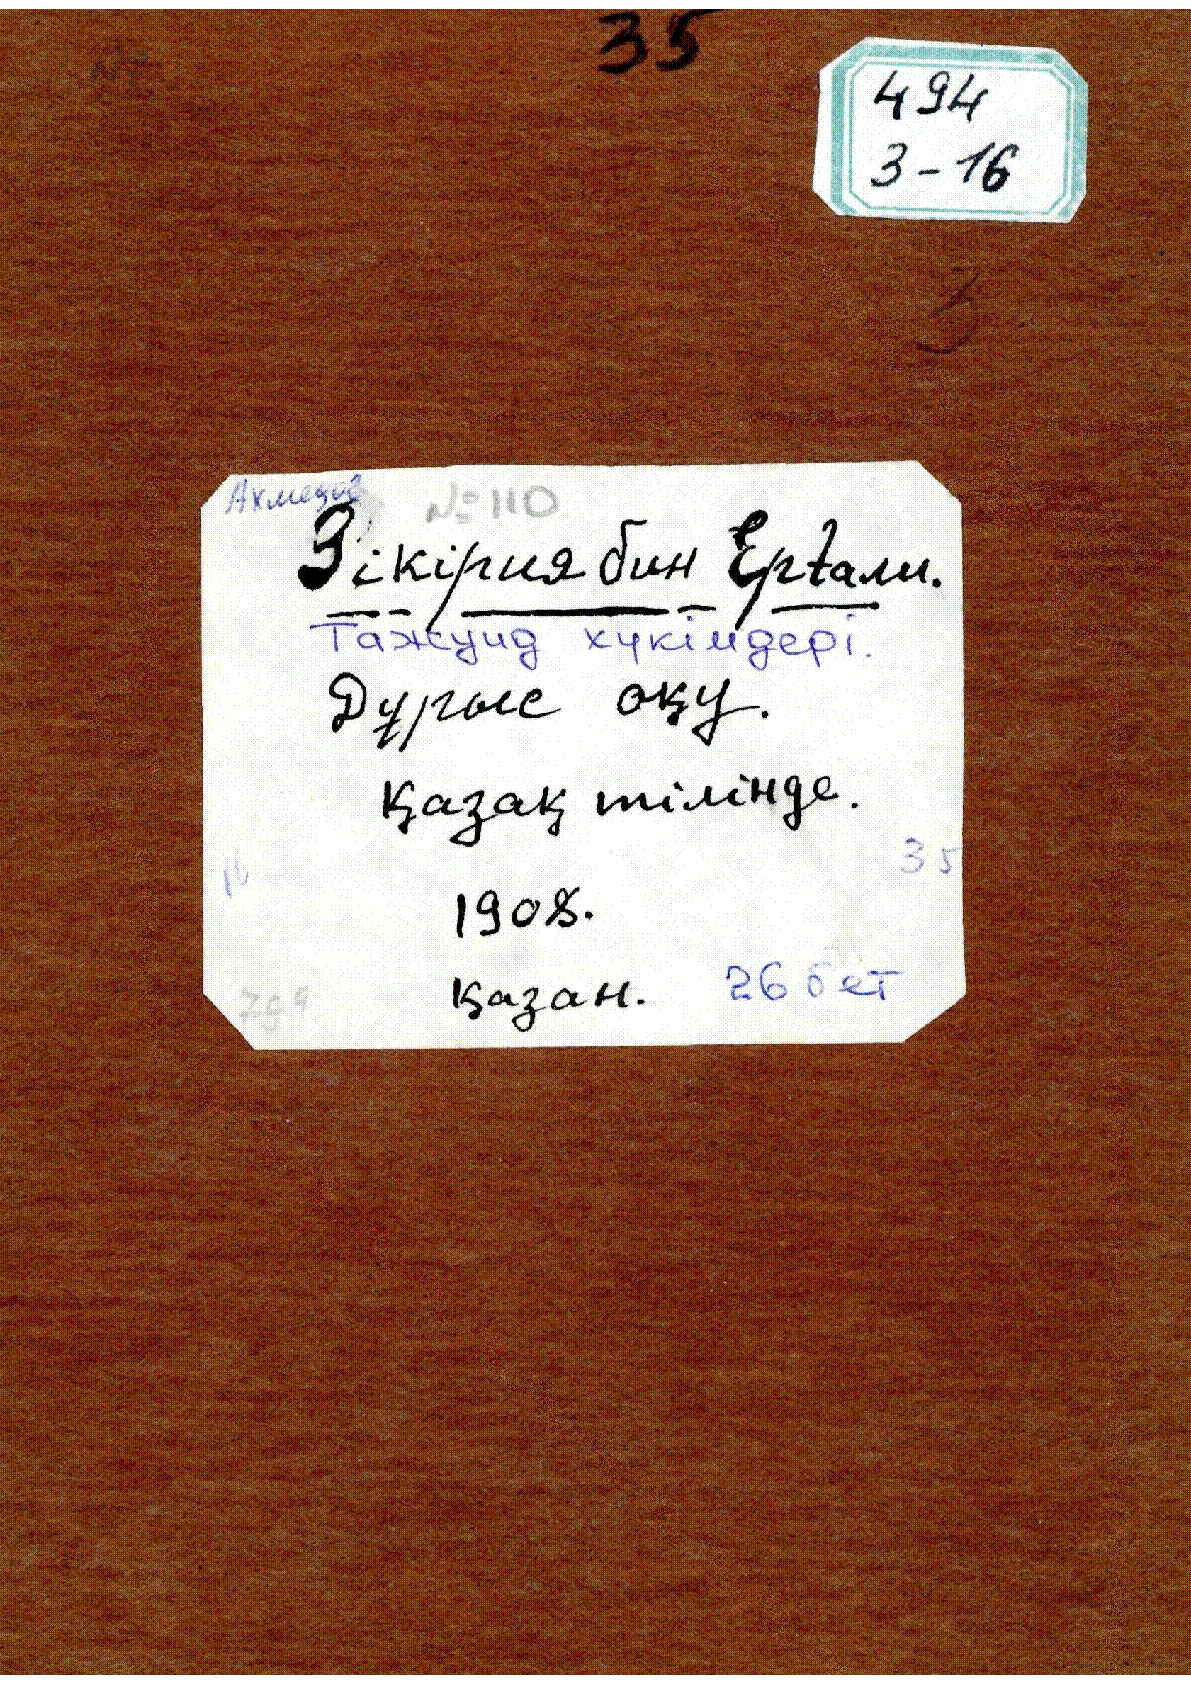 35
494
3-16
Ахмедов
№ 110
Зікірия бин Ерғали.
Тажуид хүкімдері.
Дұрыс оқу.
Қазақ тілінде.
35
1908.
Қазан. 26 бет